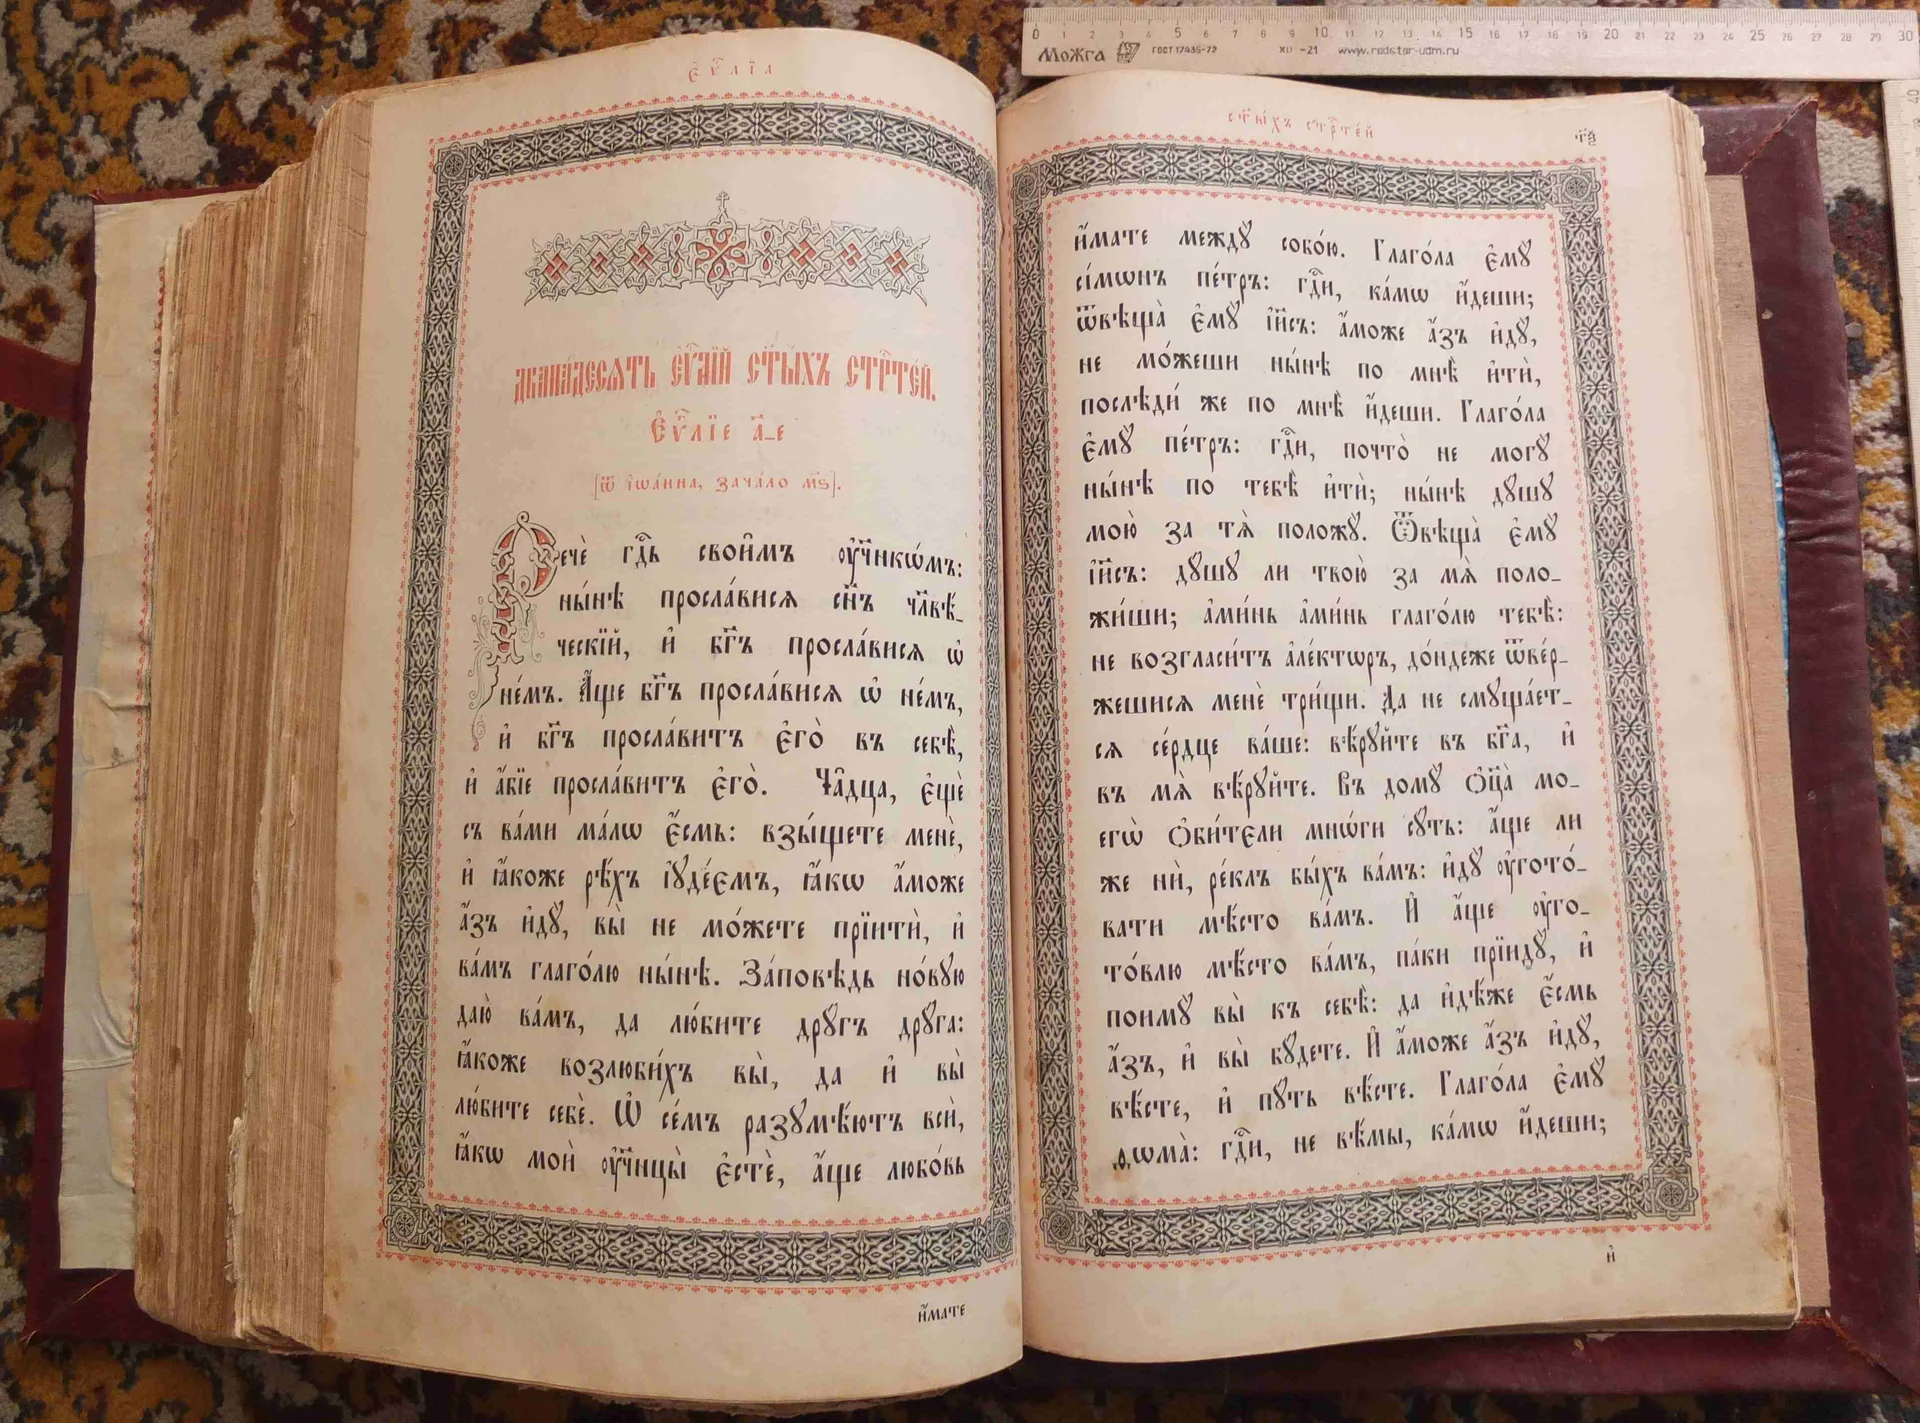 Є҆ѵⷢ҇лїа
Двана́десѧть є҆ѵⷢ҇лїй ст҃ы́хъ стрⷭ҇те́й.
Є҆ѵⷢ҇лїе а҃-е
[ѿ і҆ѡа́нна, зача́ло м҃ѕ].
Речѐ гдⷭ҇ь свои̑мъ ᲂу҆чн҃кѡ́мъ:
ны́нѣ просла́висѧ сн҃ъ чл҃вѣ́-
ческїй, и҆ бг҃ъ просла́висѧ ѡ҆
не́мъ. А҆́ще бг҃ъ просла́висѧ ѡ҆ не́мъ,
и҆ бг҃ъ просла́витъ є҆го̀ въ себѣ̀,
и҆ а҆́бїе просла́витъ є҆го̀. Ча̑дца, є҆щѐ
съ ва́ми ма́лѡ є҆́смь: взы́щете менѐ,
и҆ ꙗ҆́коже рѣ́хъ і҆ꙋде́ѡмъ, ꙗ҆́кѡ а҆́може
а҆́зъ и҆дꙋ̀, вы̀ не мо́жете прїитѝ, и҆
ва́мъ глаго́лю ны́нѣ. За́повѣдь но́вꙋю
даю̀ ва́мъ, да лю́бите дрꙋ́гъ дрꙋ́га:
ꙗ҆́коже возлюби́хъ вы̀, да и҆ вы̀
лю́бите себѐ. Ѡ҆ се́мъ разꙋмѣ́ютъ всѝ,
ꙗ҆́кѡ моѝ ᲂу҆чн҃цы̀ є҆стѐ, а҆́ще любо́вь
и҆́мате
ст҃ы́хъ стрⷭ҇те́й
и҆́мате междꙋ̀ собо́ю. Глаго́ла є҆мꙋ̀
сі́мѡнъ пе́тръ: гдⷭ҇и, ка́мѡ и҆́деши;
ѿвѣща̀ є҆мꙋ̀ і҆и҃съ: а҆́може а҆́зъ и҆дꙋ̀,
не мо́жеши ны́нѣ по мнѣ̀ и҆тѝ,
послѣди́ же по мнѣ̀ и҆́деши. Глаго́ла
є҆мꙋ̀ пе́тръ: гдⷭ҇и, почто̀ не могꙋ̀
ны́нѣ по тебѣ̀ и҆тѝ; ны́нѣ дꙋ́шꙋ
мою̀ за тѧ̀ положꙋ̀. Ѿвѣща̀ є҆мꙋ̀
і҆и҃съ: дꙋ́шꙋ ли твою̀ за мѧ̀ поло-
жи́ши; а҆ми́нь а҆ми́нь глаго́лю тебѣ̀:
не возгласи́тъ а҆ле́кторъ, до́ндеже ѿве́р-
жешисѧ менѐ три́щи. Да не смꙋща́ет-
сѧ се́рдце ва́ше: вѣ́рꙋйте въ бг҃а, и҆
въ мѧ̀ вѣ́рꙋйте. Въ домꙋ̀ ѻ҆ц҃а̀ мо-
егѡ̀ ѻ҆би́тєли мнѡ́ги сꙋ́ть: а҆́ще ли
же нѝ, ре́клъ бы́хъ ва́мъ: и҆дꙋ̀ ᲂу҆гото́-
вати мѣ́сто ва́мъ. И҆ а҆́ще ᲂу҆го-
то́влю мѣ́сто ва́мъ, па́ки прїидꙋ̀, и҆
поимꙋ̀ вы̀ къ себѣ̀: да и҆дѣ́же є҆́смь
а҆́зъ, и҆ вы̀ бꙋ́дете. И҆ а҆́може а҆́зъ и҆дꙋ̀,
вѣ́сте, и҆ пꙋ́ть вѣ́сте. Глаго́ла є҆мꙋ̀
ѳѡма̀: гдⷭ҇и, не вѣ́мы, ка́мѡ и҆́деши;
и҆
0 1 2 3 4 5 6 7 8 9 10 11 12 13 14 15 16 17 18 19 20 21 22 23 24 25 26 27 28 29 30
Можга ГОСТ 17435-72 XII -21 www.redstar-udm.ru
40